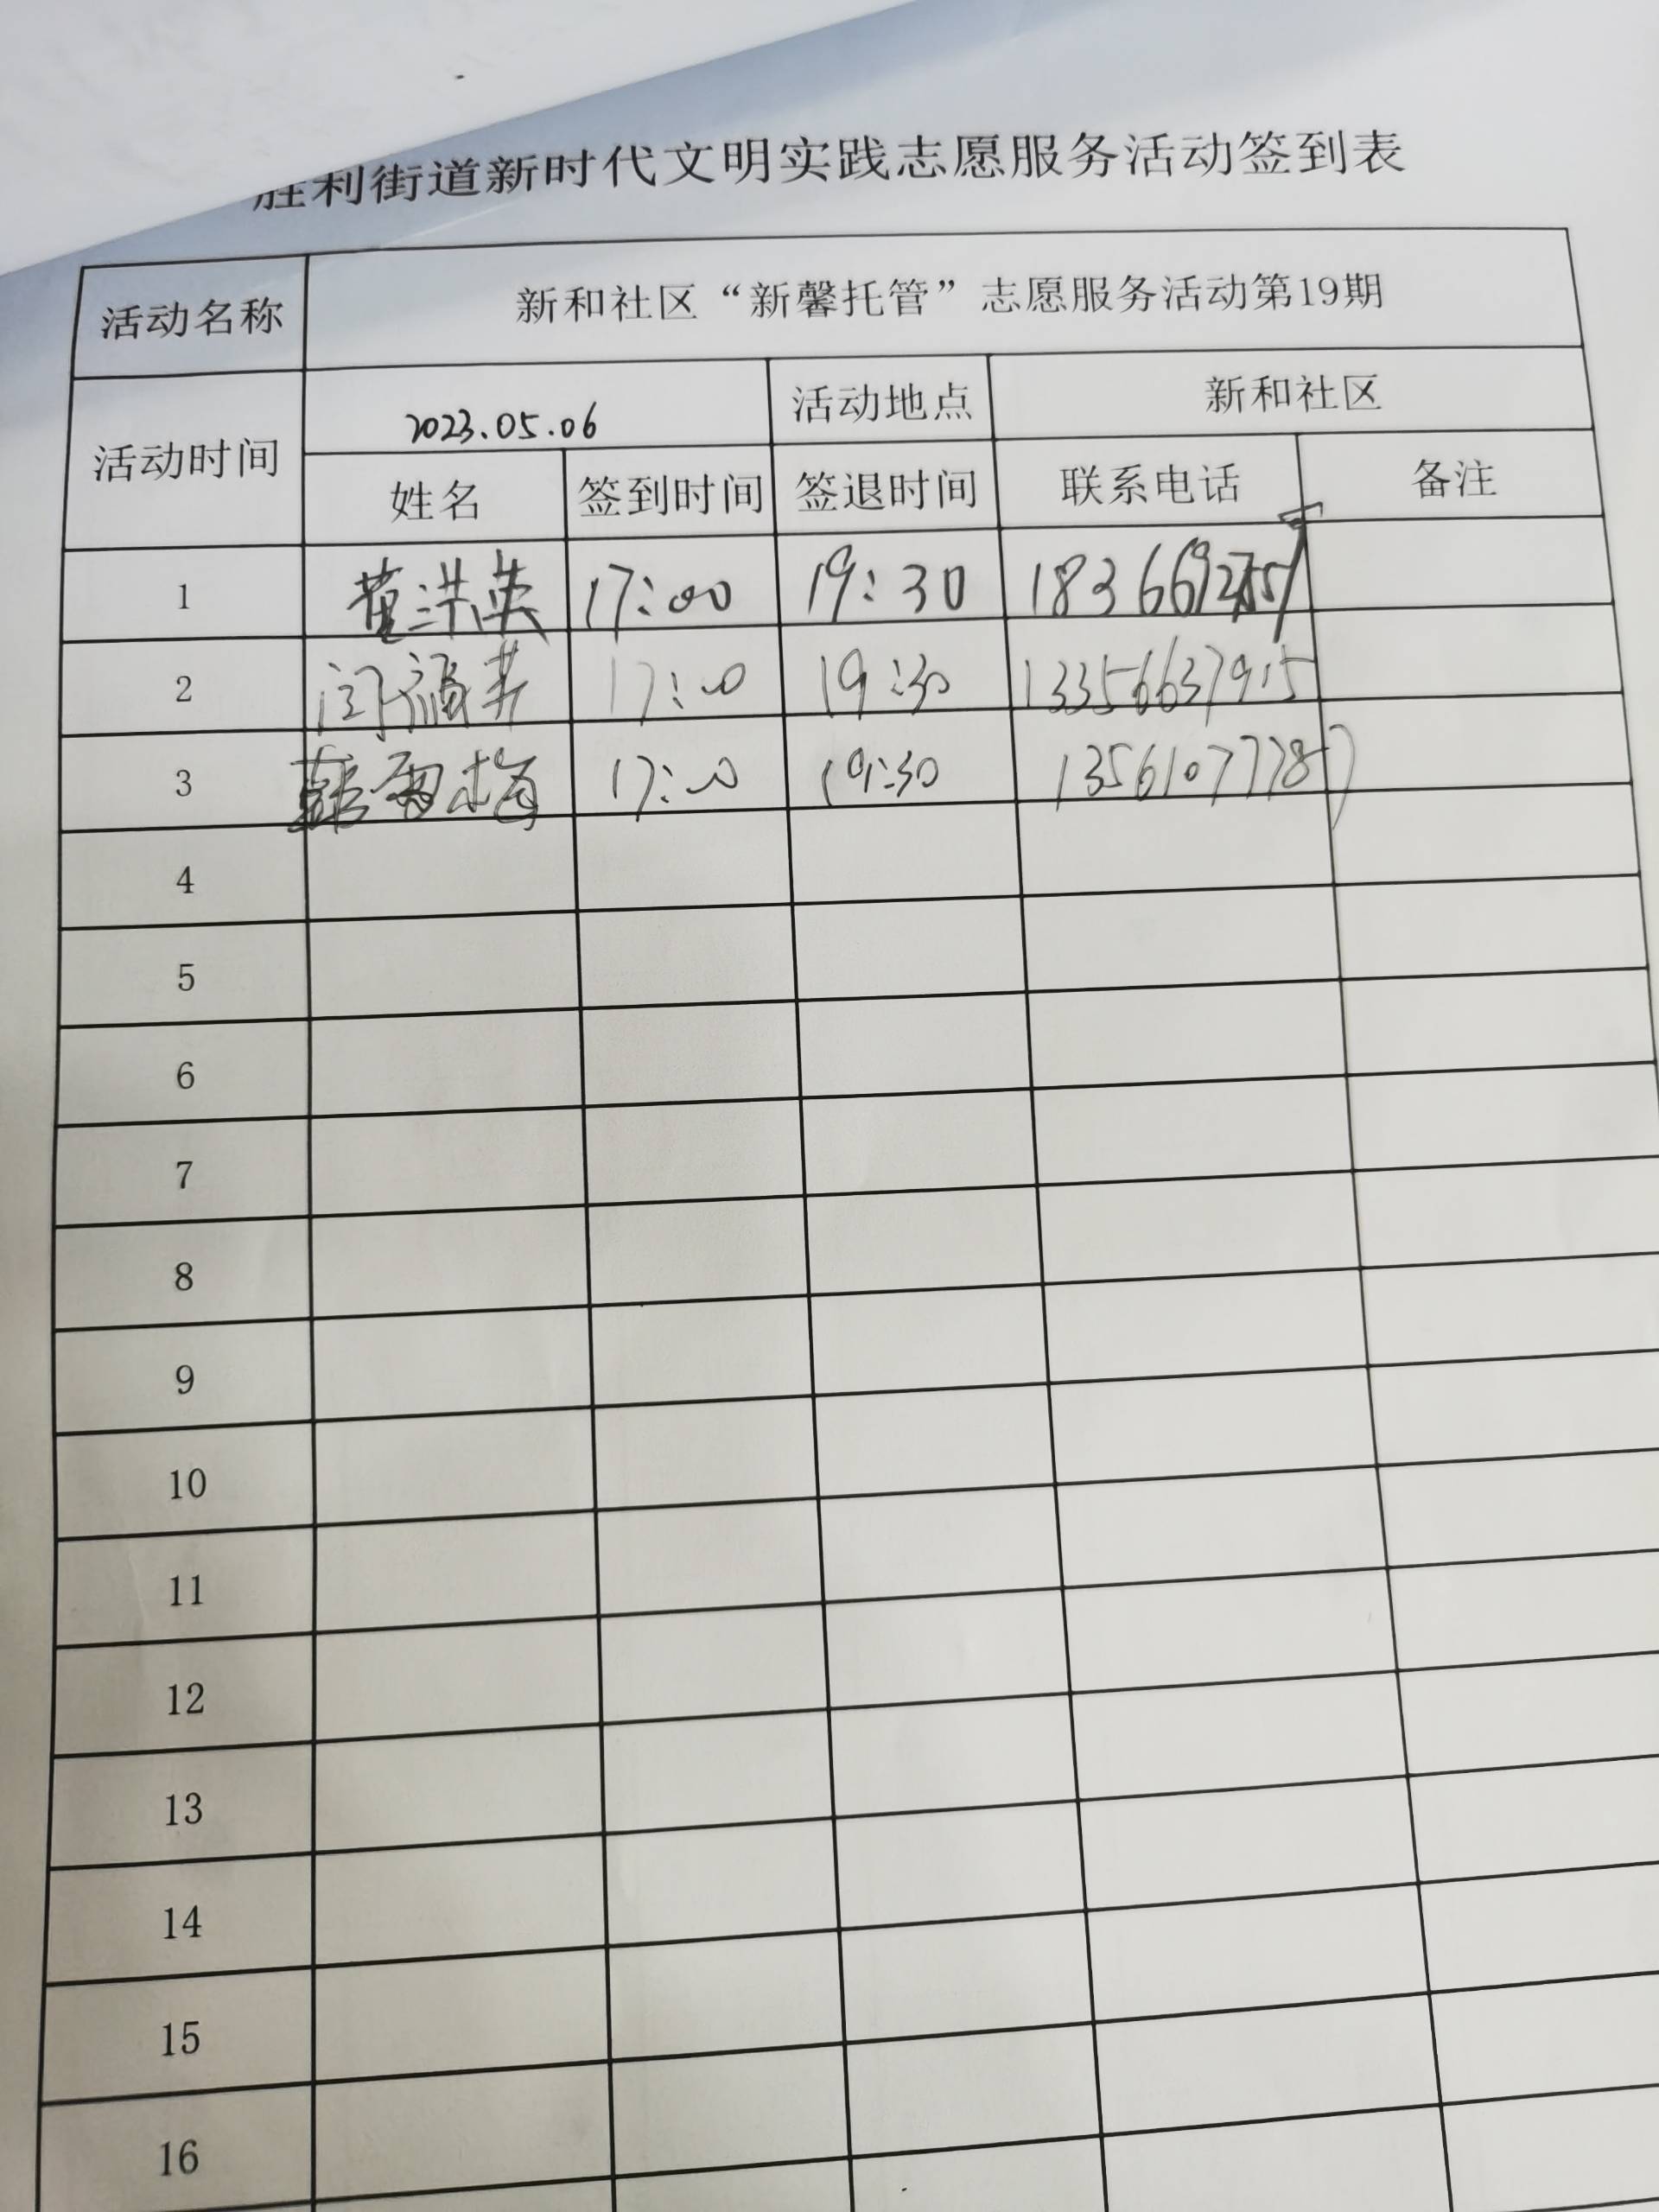 胜利街道新时代文明实践志愿服务活动签到表
活动名称 新和社区“新馨托管”志愿服务活动第19期
活动时间 2023.05.06 活动地点 新和社区
姓名 签到时间 签退时间 联系电话 备注
1 董洪英 17:00 19:30
2 17:00 19:30 13356637915
3 韩雪梅 17:00 19:30 13561077787
4
5
6
7
8
9
10
11
12
13
14
15
16